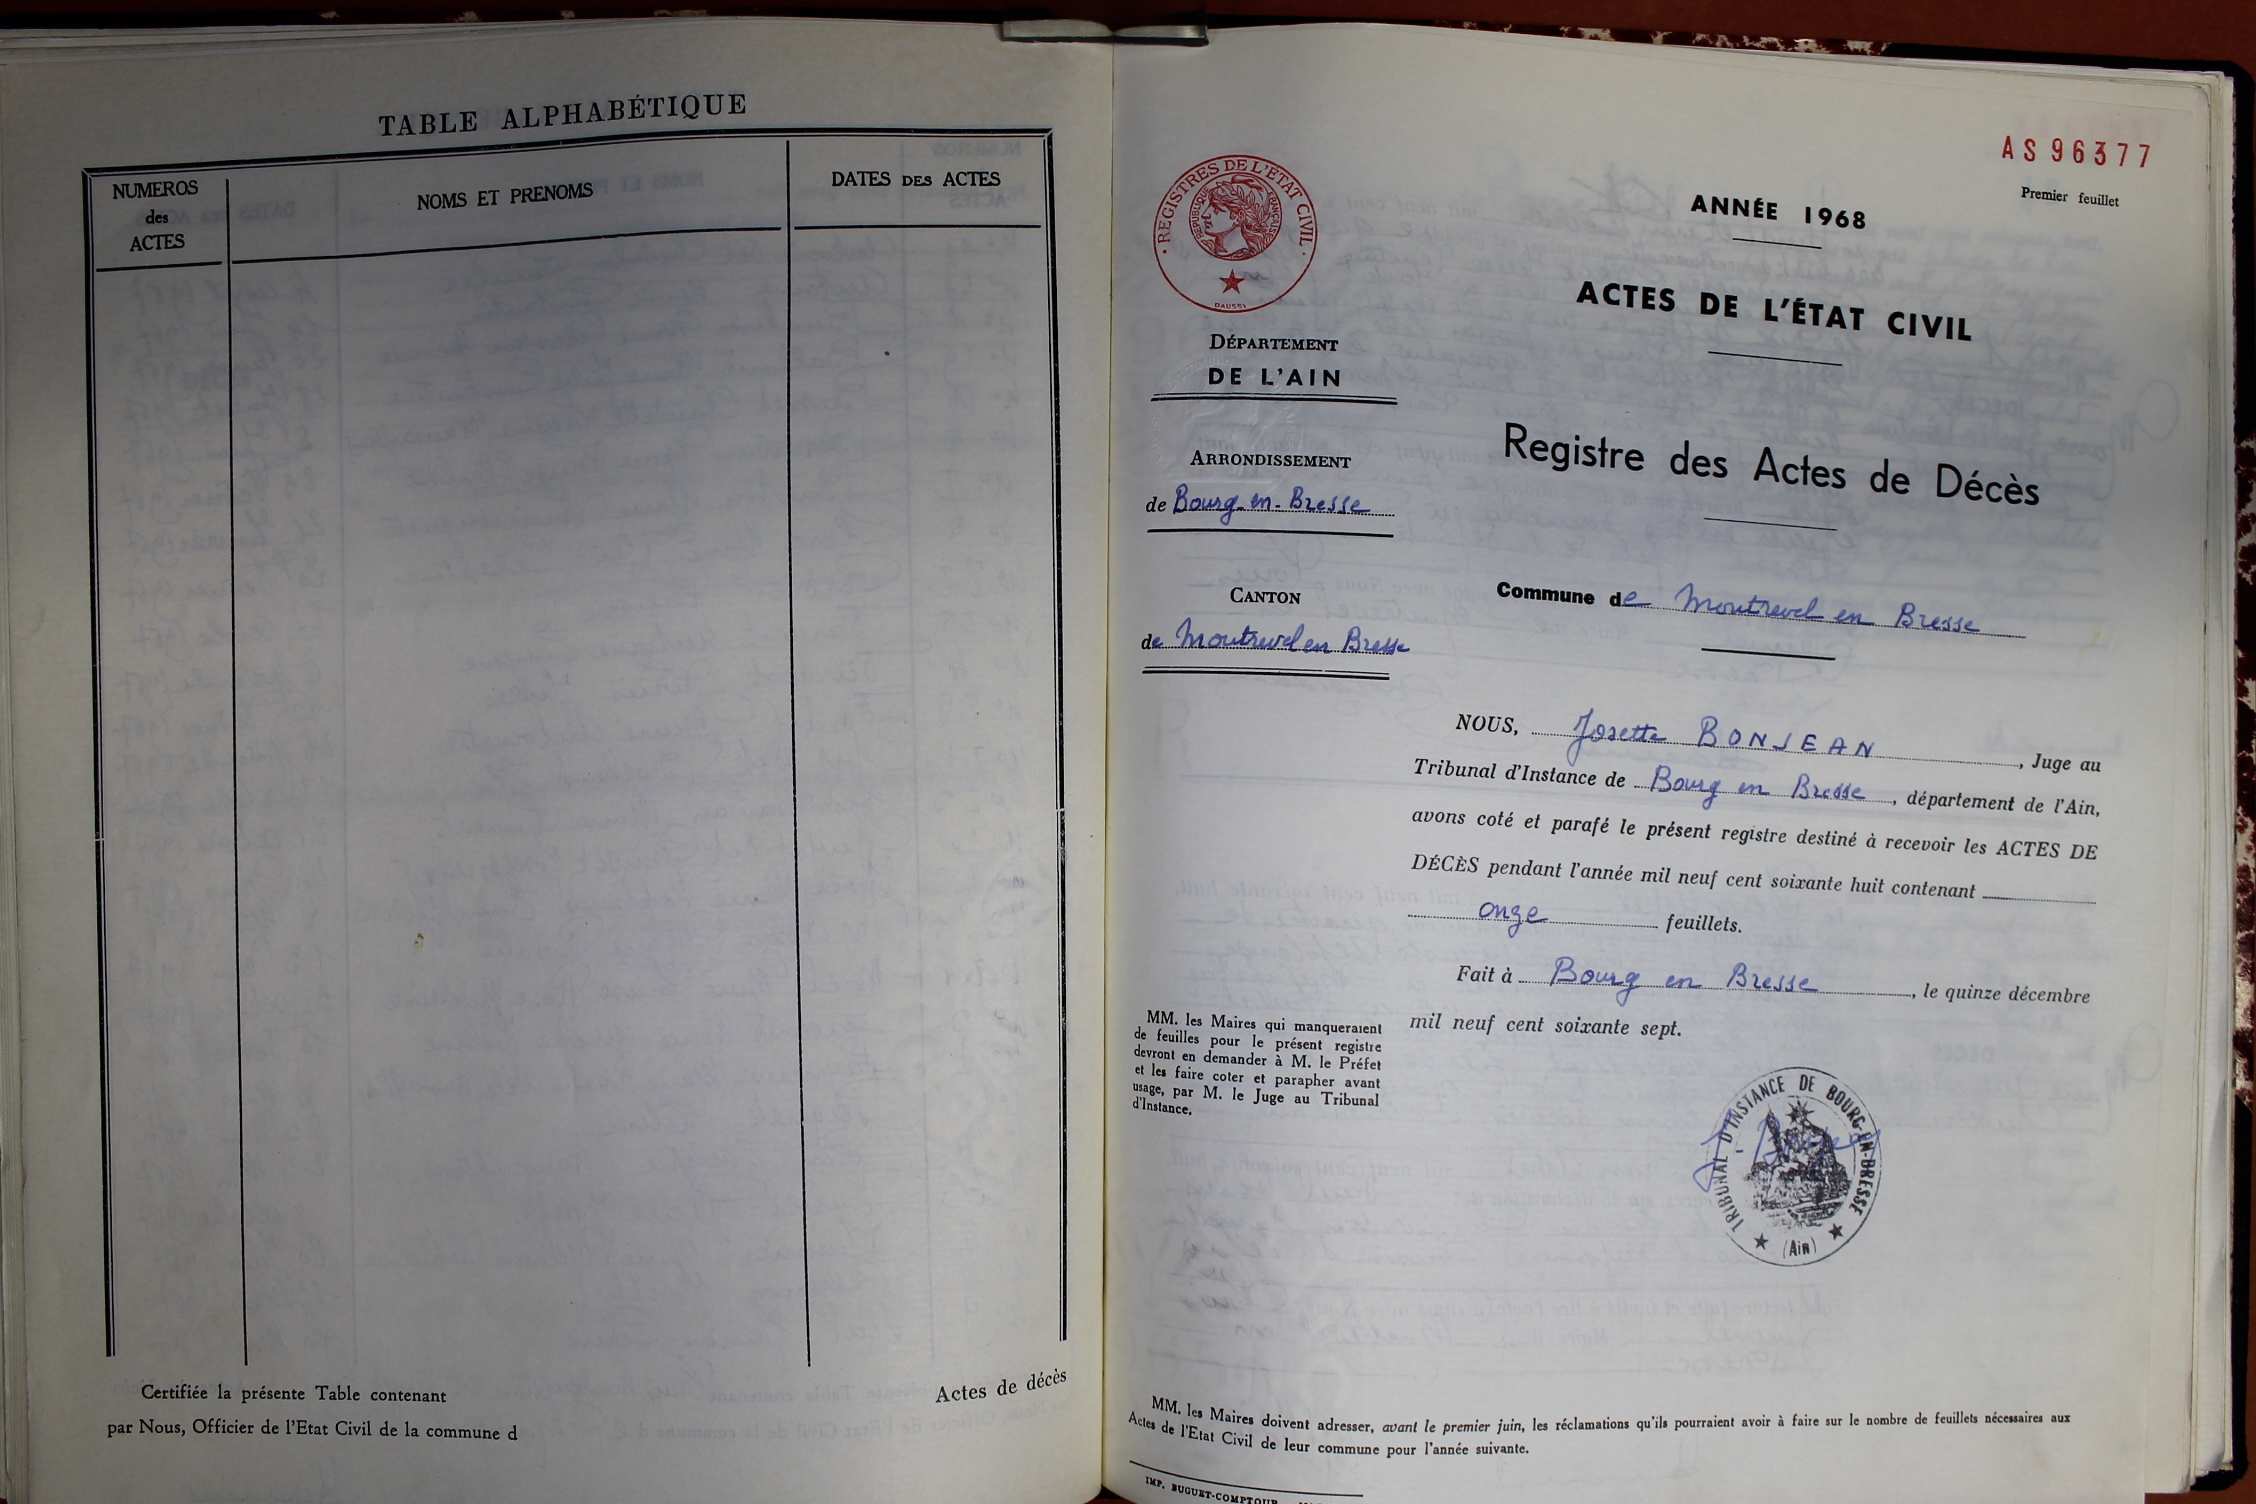 TABLE ALPHABÉTIQUE
NUMEROS
des
ACTES
NOMS ET PRENOMS
DATES DES ACTES
Certifiée la présente Table contenant
Actes de décès
par Nous, Officier de l'Etat Civil de la commune d
AS 96377
Premier feuillet
REGISTRES DE L'ÉTAT CIVIL
RÉPUBLIQUE FRANÇAISE
DAUSSI
ANNÉE 1968
ACTES DE L'ÉTAT CIVIL
DÉPARTEMENT
DE L'AIN
ARRONDISSEMENT
de Bourg-en-Bresse
CANTON
de Montrevel en Bresse
Registre des Actes de Décès
Commune de Montrevel en Bresse
NOUS, Josette BONJEAN, Juge au
Tribunal d'Instance de Bourg en Bresse, département de l'Ain,
avons coté et parafé le présent registre destiné à recevoir les ACTES DE
DÉCÈS pendant l'année mil neuf cent soixante huit contenant
onze feuillets.
Fait à Bourg en Bresse, le quinze décembre
mil neuf cent soixante sept.
MM. les Maires qui manqueraient
de feuilles pour le présent registre
devront en demander à M. le Préfet
et les faire coter et parapher avant
usage, par M. le Juge au Tribunal
d'Instance.
TRIBUNAL D'INSTANCE DE BOURG-EN-BRESSE
(Ain)
MM. les Maires doivent adresser, avant le premier juin, les réclamations qu'ils pourraient avoir à faire sur le nombre de feuillets nécessaires aux
Actes de l'Etat Civil de leur commune pour l'année suivante.
IMP. BUGUET-COMPTOUR